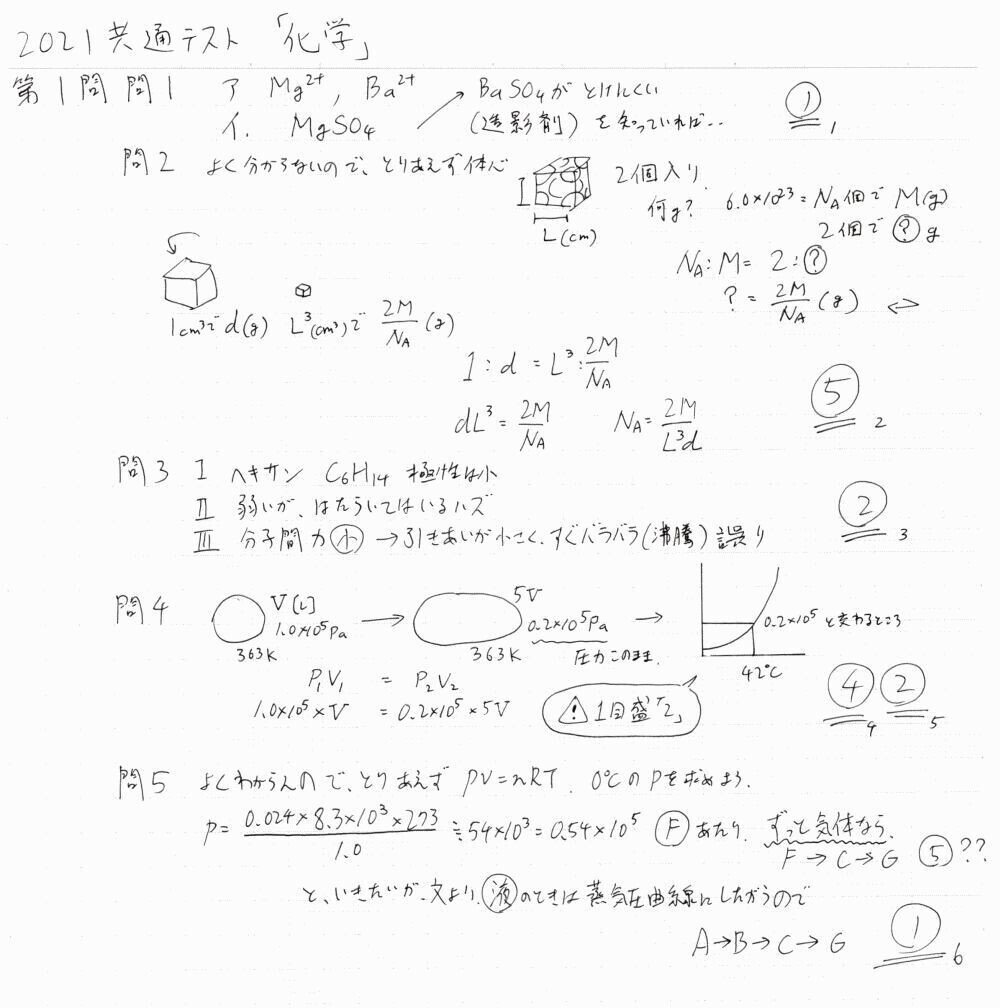 2021共通テスト「化学」
第1問 問1 ア Mg²⁺, Ba²⁺
イ. MgSO₄
BaSO₄が とけにくい
(造影剤) を知っていれば‥
① 1
問2 よく分からないので、とりあえず体心
2個入り
何g?
L(cm)
6.0×10²³=NA個で M(g)
2個で ? g
NA:M= 2:?
? = 2M/NA (g) ⇔
1cm³で d(g) L³(cm³)で 2M/NA (g)
1:d = L³:2M/NA
dL³= 2M/NA NA= 2M/L³d
⑤ 2
問3 I ヘキサン C₆H₁₄ 極性は小
II 弱いが、はたらいてはいるハズ
III 分子間力小 → 引きあいが小さく、すぐバラバラ(沸騰) 誤り
② 3
問4 V[L] 1.0×10⁵Pa 363K
5V 0.2×10⁵Pa 363K 圧力このまま.
0.2×10⁵と交わるところ
42℃
P₁V₁ = P₂V₂
1.0×10⁵×V = 0.2×10⁵×5V
⚠ 1目盛「2」
④ 4 ② 5
問5 よくわからんので、とりあえず PV=nRT. 0℃のPを求めよう.
P= 0.024×8.3×10³×273/1.0 ≒54×10³=0.54×10⁵ F あたり. ずっと気体なら、
F→C→G ⑤??
と、いきたいが、文より、液のときは蒸気圧曲線にしたがうので
A→B→C→G ① 6